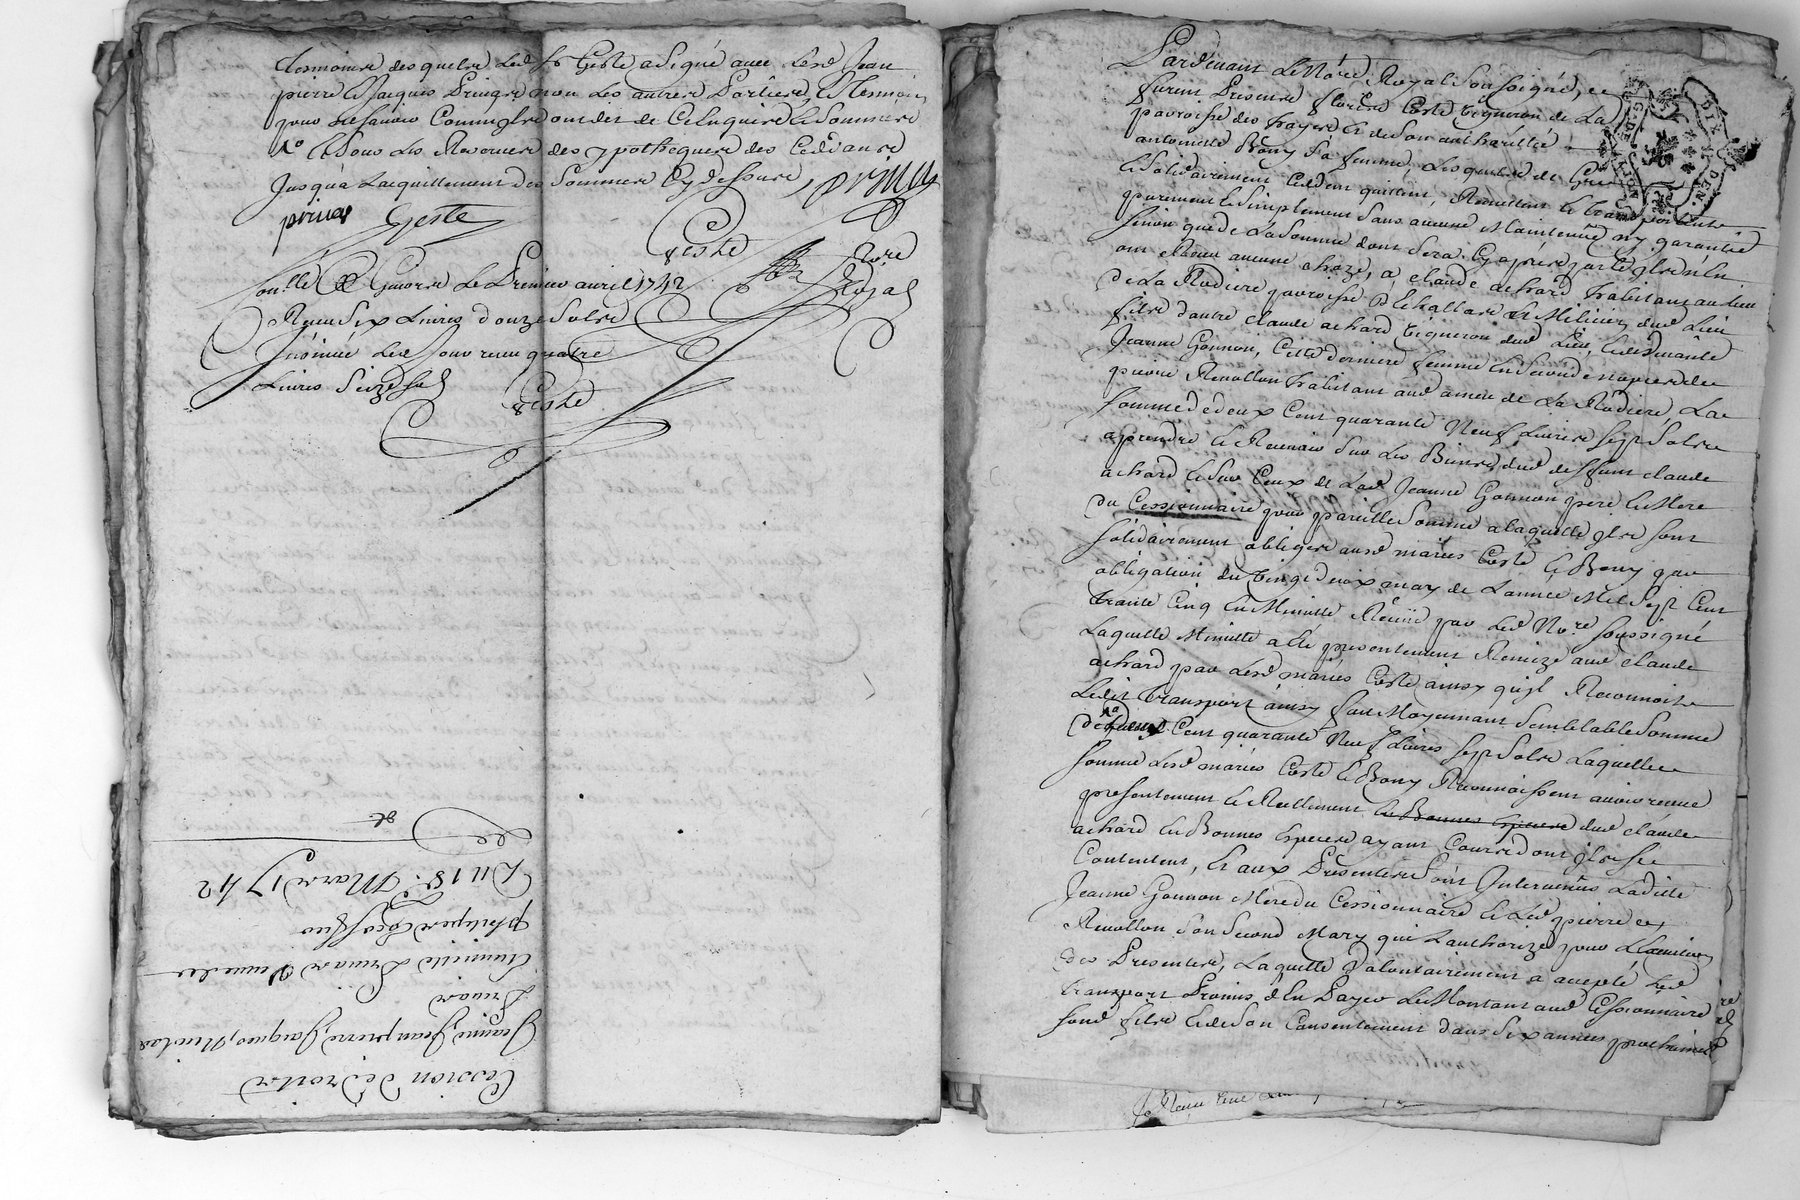 tesmoins desquels led Sr Geste a signé avec lesd Jean
pierre et Jacques Privas non les autres parties, et tesmoins
pour ne savoir
et sous les Reserves des ypotheques des Cedans
Jusqu'a l'acquittement des Sommes Cy dessus, privas
privas Geste
Geste
Nore Royal
Con.lle a Givors le Premier avril 1742
Reçu Six Livres douze Sols
Insinué led Jour reçu quatre
Livres Seize sols
Geste
Cession de droits
Jeanne, Jean pierre, Jacques, Nicolas
Privas
Philiper
Du 18e Mars 1742
Pardevant le No.re Royal Soussigné, et
furent Presens florend Coste Vigneron de La
parroisse des hayes et de son authorité
antoinette Bony sa femme, Lesquels de Gré
et solidairement Cedent quittent, Remettent et transportent
purement et simplement sans aucune Maintenue ny garantie
sinon que de La somme dont sera Cy après parlé ils n'en
ont Reçu aucune choze, a claude achard habitant au lieu
de La Rodiere parroisse d'Echallas et Milicien dud Lieu
fils d'autre claude achard Vigneron dud Lieu, et de
Jeanne Gonnon, Cette derniere femme En seconde nopces de
pierre Revollon habitant aud ameau de La Rodiere, La
somme de deux Cent quarante Neuf Livres sept Sols
a prendre et Recevoir sur les Biens dud deffunt claude
achard et sur Ceux de Lad Jeanne Gonnon pere et Mere
du Cessionnaire pour pareille somme a laquelle ils se sont
solidairement obligés ausd mariés Coste et Bony par
obligation du vingt deux may de L'année Mil Sept Cent
trente Cinq En Minutte Receüe par led No.re soussigné
Laquelle Minutte a été presentement Remize aud claude
achard par Lesd mariés Coste ainsy qu'il Reconnoit
Ledit transport ainsy fait Moyennant Semblable Somme
de deux Cent quarante Neuf Livres sept Sols Laquelle
somme Lesd mariés Coste et Bony Reconnoissent avoir reçue
presentement et Reellement en Bonnes Especes dud claude
achard En Bonnes Especes ayant Cours dont ils se
Contentent, Et aux Presentes Sont Intervenus Ladite
Jeanne Gonnon Mere du Cessionnaire et Led pierre
Revollon son second Mary qui L'authorize pour
des Presentes, Laquelle Volontairement a accepté led
transport Promis d'En Payer Le Montant aud Cessionnaire
fils et de son Consentement dans Six années prochaines